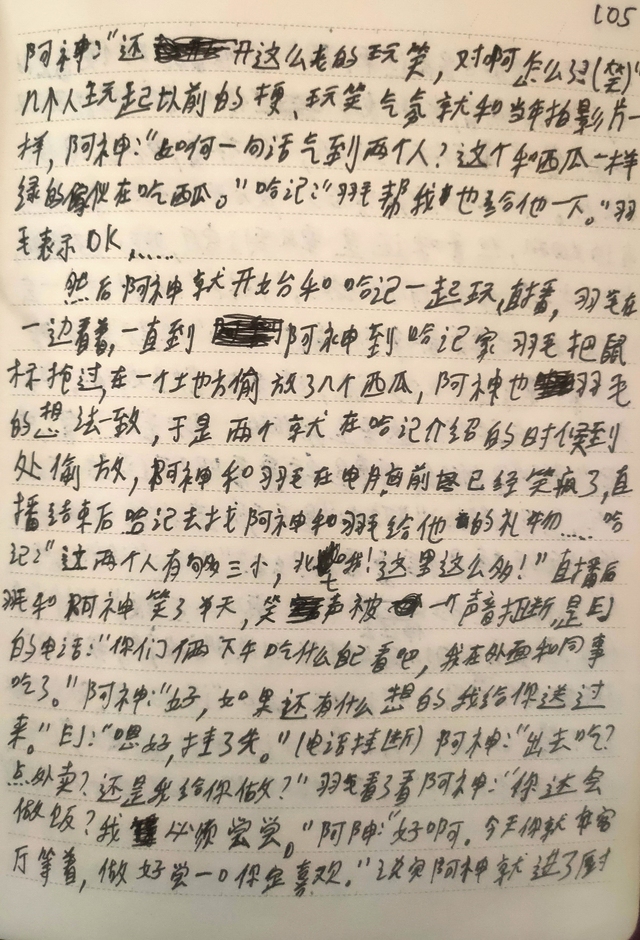 105
阿神:“还开这么老的玩笑,对啊怎么了(笑)”
几个人玩起以前的梗、玩笑气氛就和当年拍影片一
样,阿神:“如何一句话气到两个人?这个和西瓜一样
绿的傢伙在吃西瓜。”哈记:“羽毛帮我也给他一下。”羽
毛表示OK……
然后阿神就开始和哈记一起玩,直播,羽毛在
一边看着,一直到阿神到哈记家羽毛把鼠
标抢过,在一个土地方偷放了几个西瓜,阿神也羽毛
的想法一致,于是两个就在哈记介绍的时候到
处偷放,阿神和羽毛在电脑前已经笑疯了,直
播结束后哈记去找阿神和羽毛给他的礼物……哈
记:“这两个人有够三小,我!这里这么多!”直播后
羽毛和阿神笑了半天,笑声被一个声音打断,是E
的电话:“你们俩下午吃什么自己看吧,我在外面和同事
吃了。”阿神:“好,如果还有什么想的我给你送过
来。”E:“嗯好,挂了先。”(电话挂断)阿神:“出去吃?
点外卖?还是我给你做?”羽毛看了看阿神:“你还会
做饭?我必须尝尝。”阿神:“好啊。今天你就在客
厅等着,做好尝一口你定喜欢。”说完阿神就进了厨